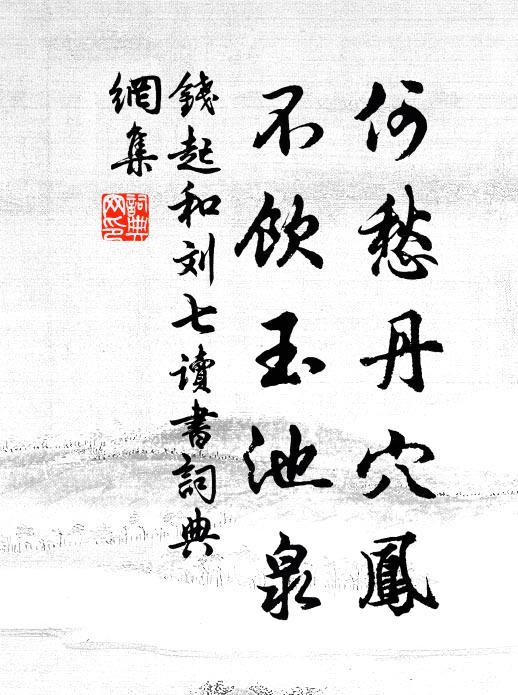 何愁丹穴鳳
不飲玉池泉
錢起和刘七读書詞典
網集
詞典
网印